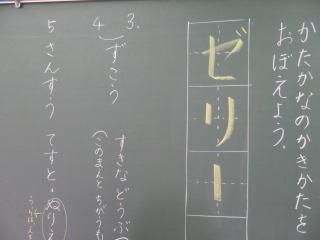 かたかなのかきかたを
おぼえよう。
ゼリー
3.
4 ずこう すきなどうぶつ
(このまんとちがうも
5 さんすう てすと。ぬりえ